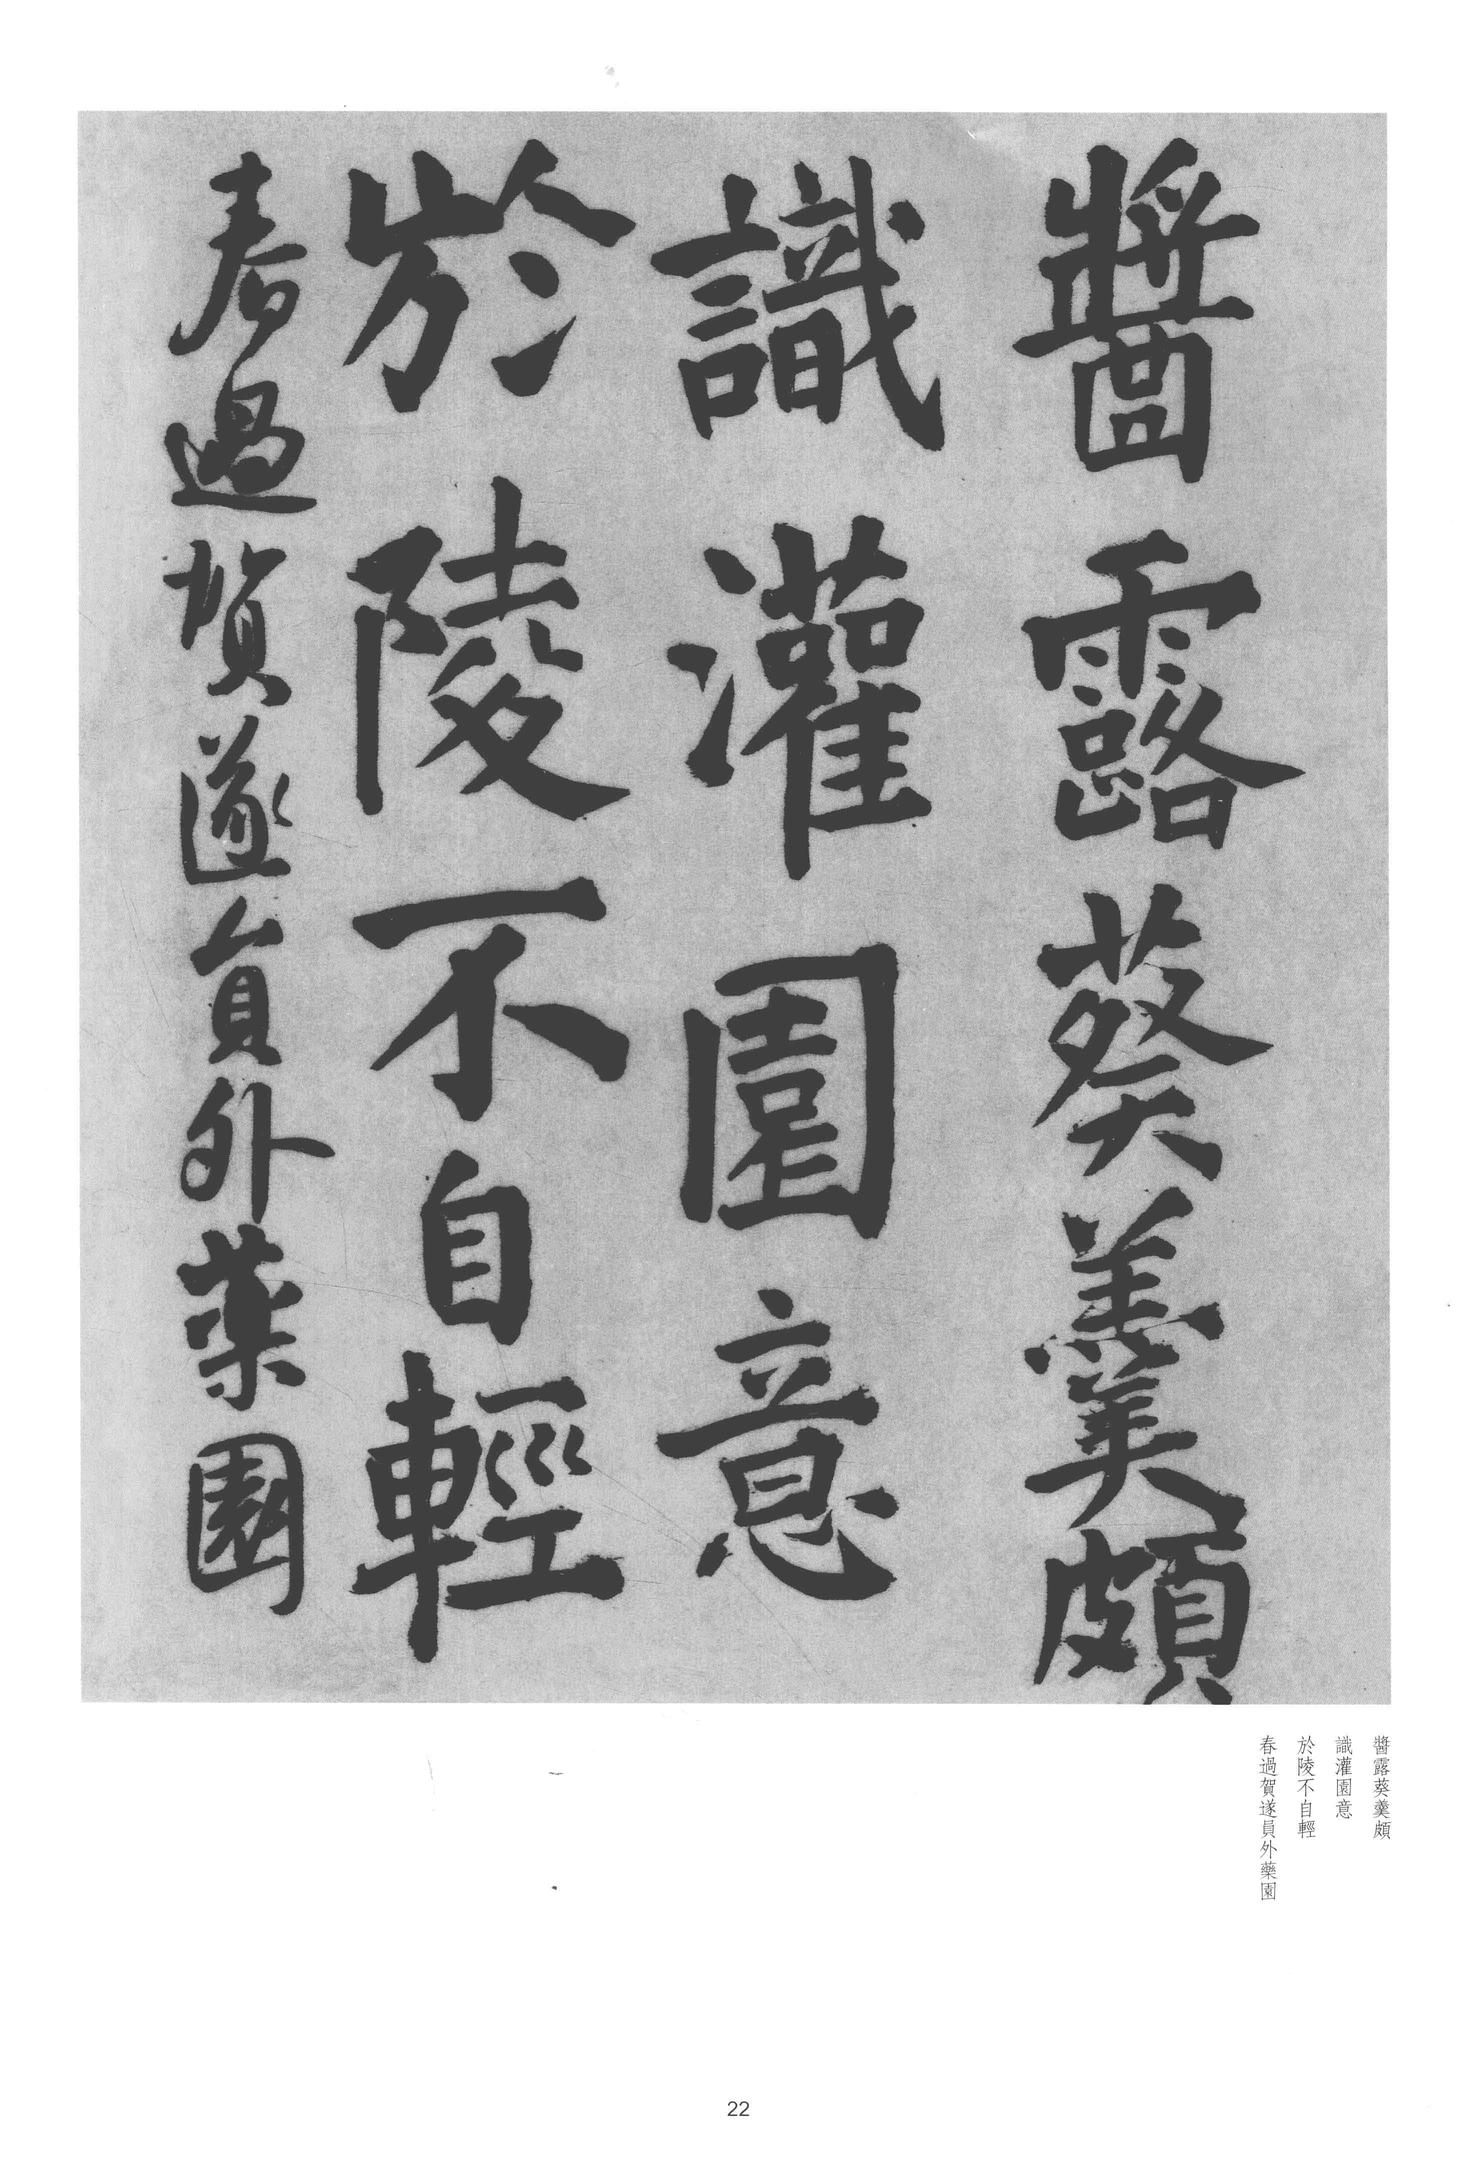 醬露葵羹頗
識灌園意
於陵不自輕
春過賀遂員外藥園
醬露葵羹頗
識灌園意
於陵不自輕
春過賀遂員外藥園
22